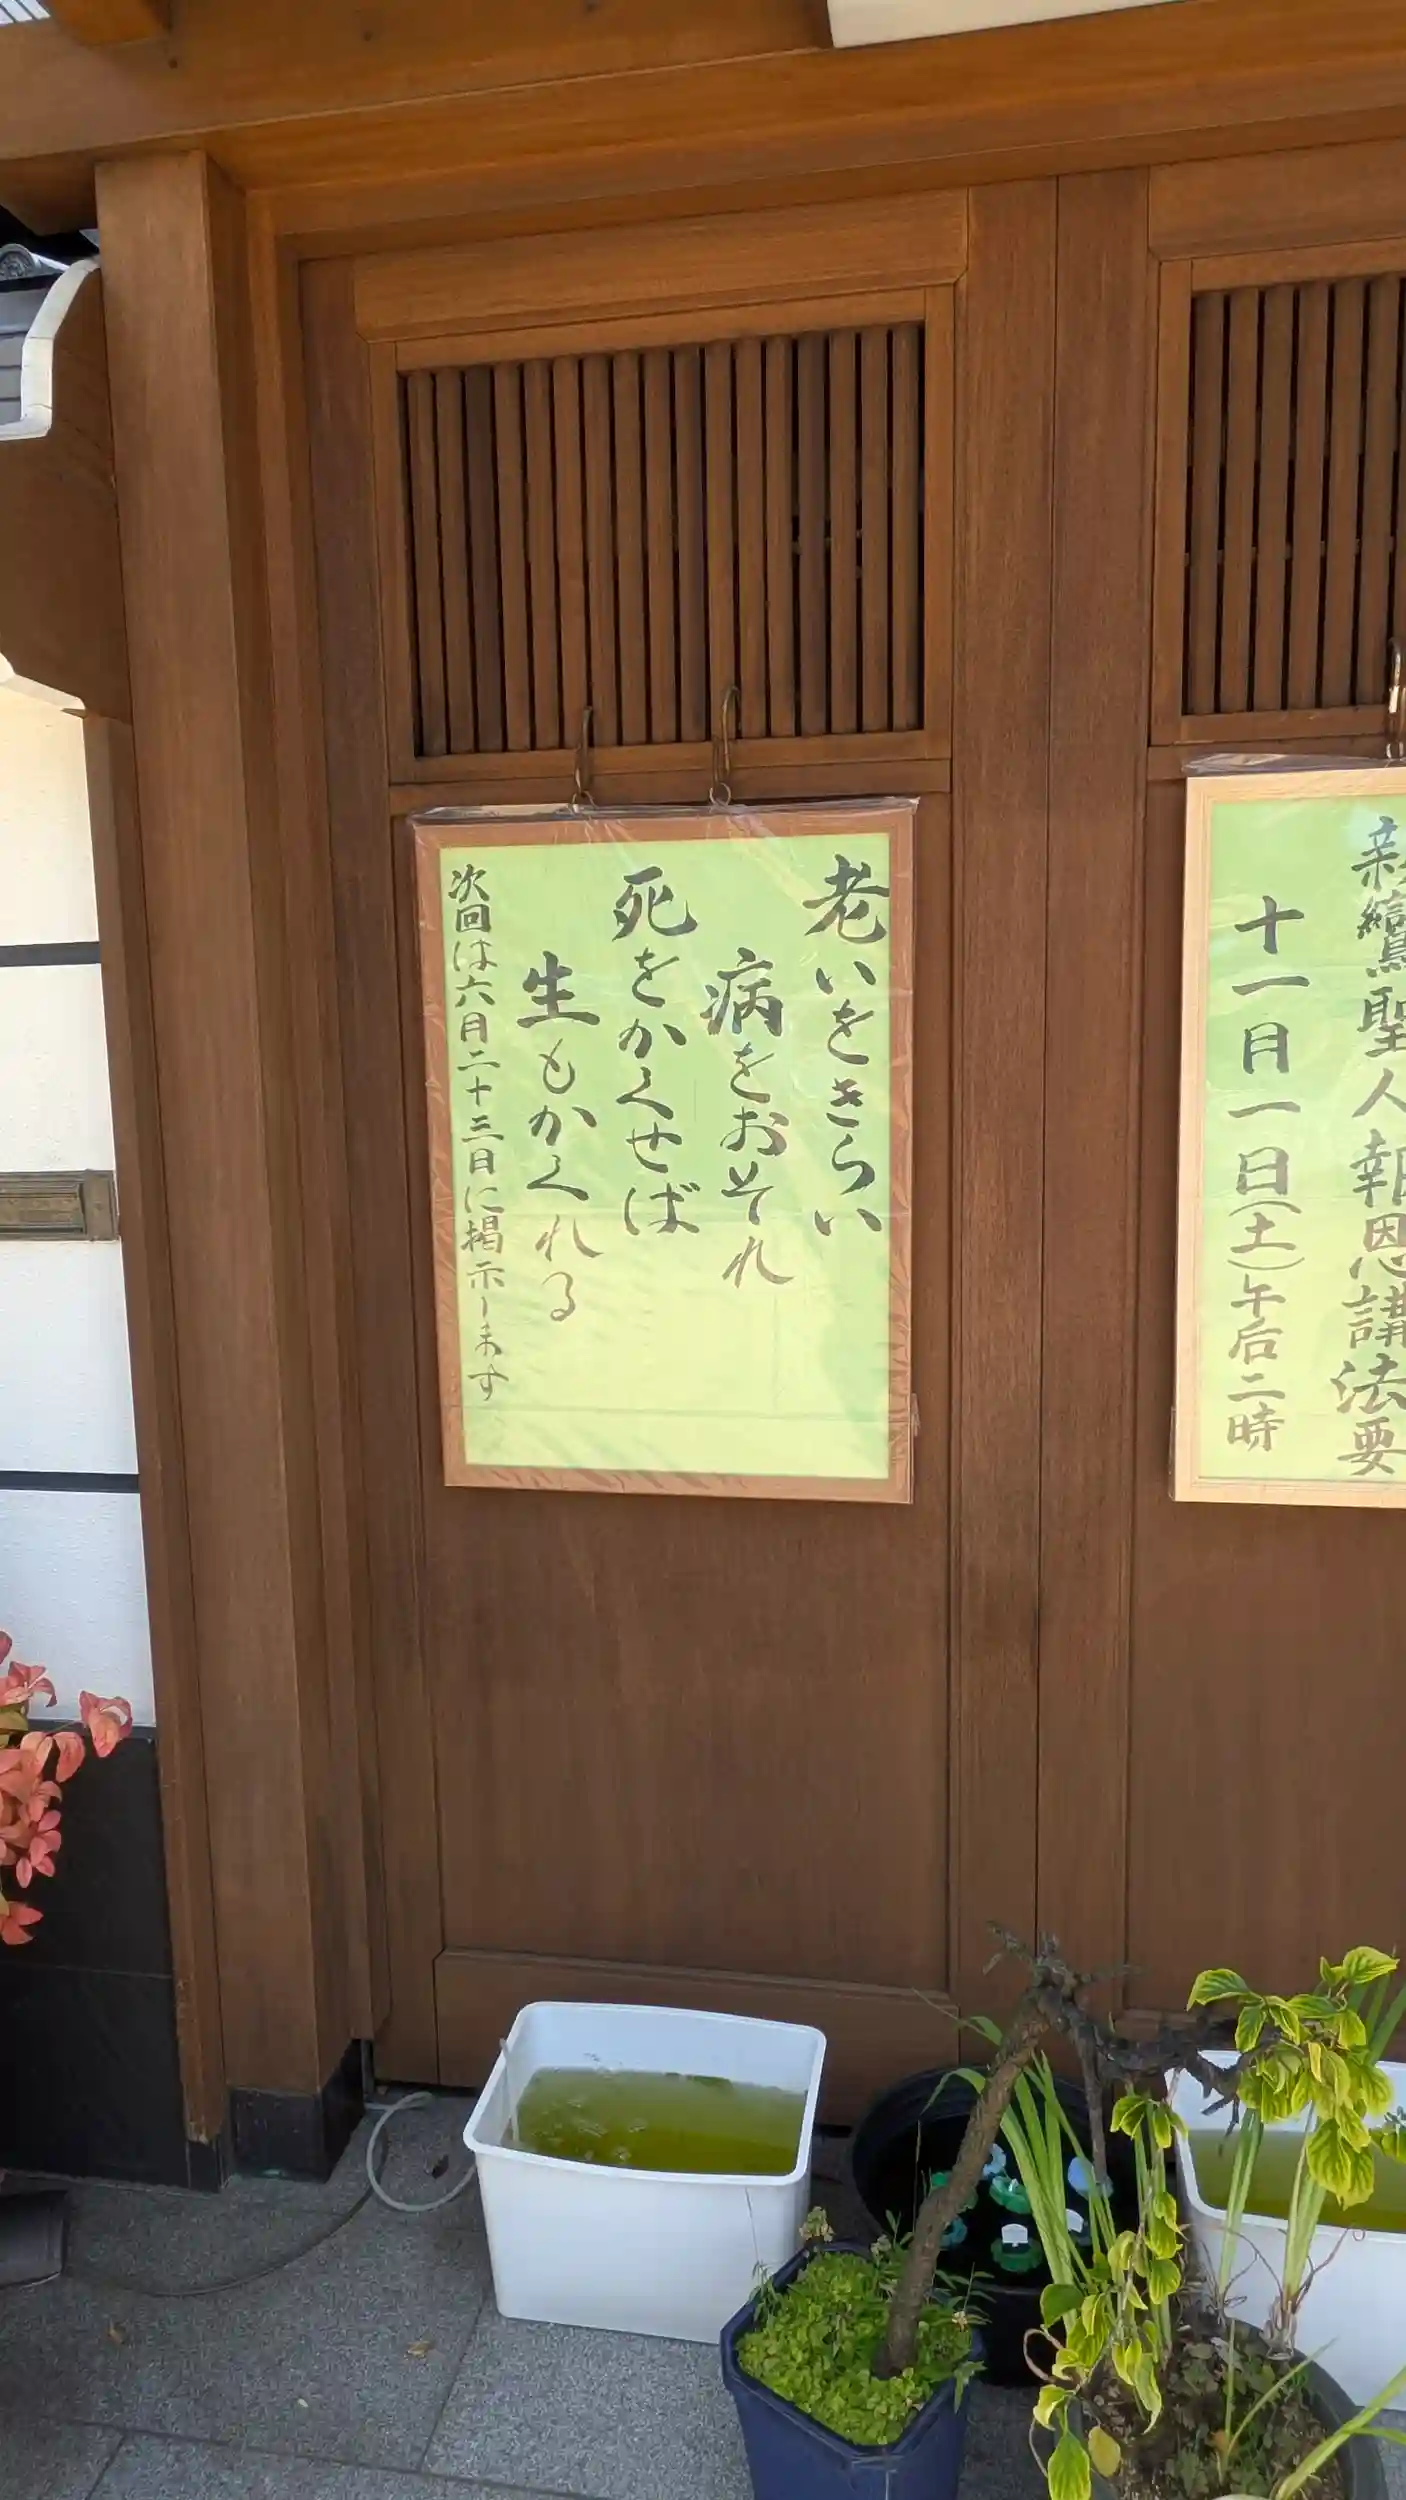 親鸞聖人報恩講法要
十一月一日(土)午后二時
老いをきらい
病をおそれ
死をかくせば
生もかくれる
次回は六月二十三日に掲示します